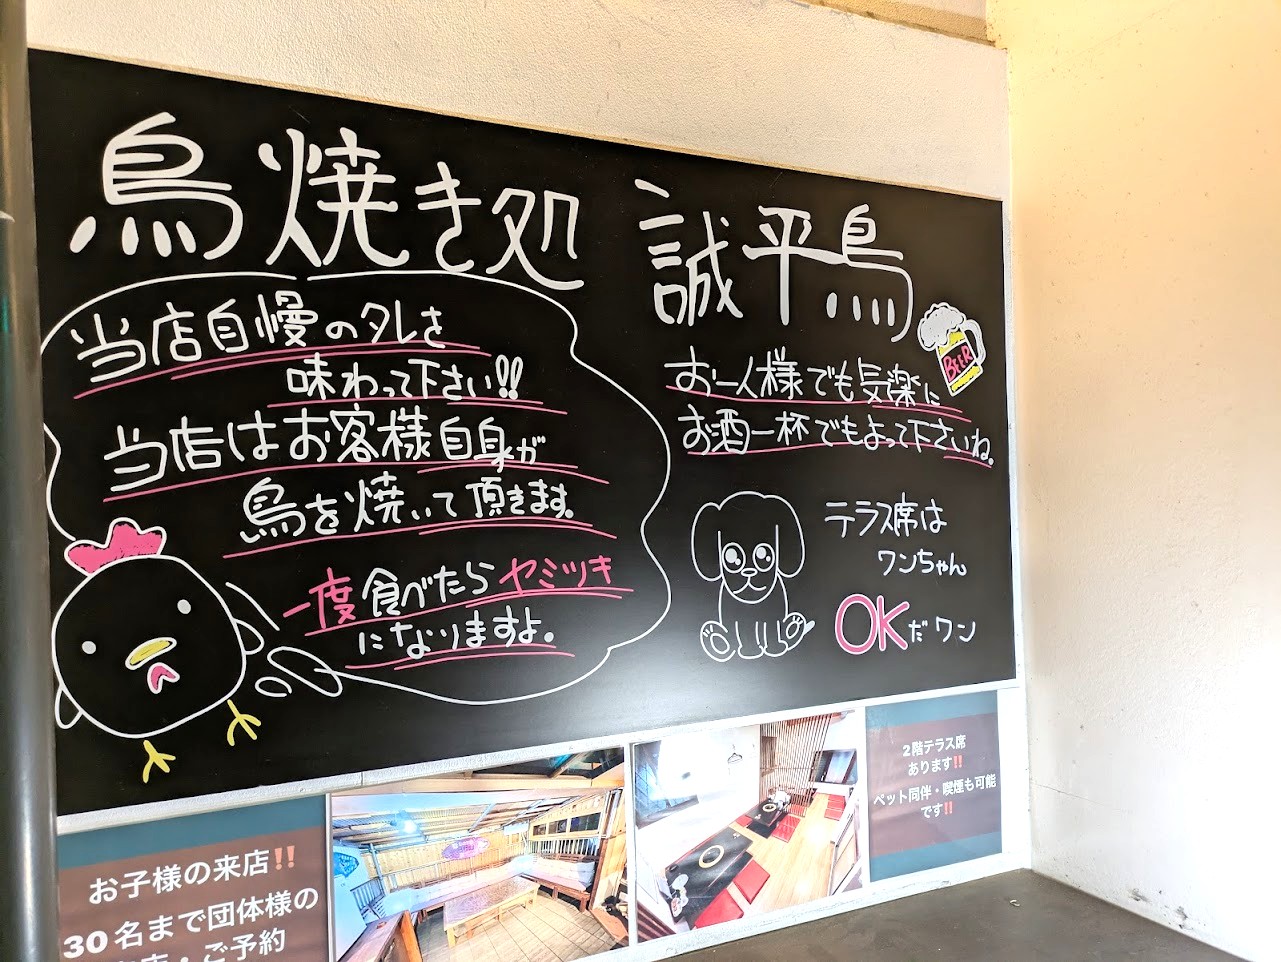 鳥焼き処 誠平鳥
当店自慢のタレを
味わって下さい!!
当店はお客様自身が
鳥を焼いて頂きます。
一度食べたらヤミツキ
になりますよ。
お一人様でも気楽に
お酒一杯でもよって下さいね。
BEER
テラス席は
ワンちゃん
OKだワン
お子様の来店!!
30名まで団体様の
・ご予約
2階テラス席
あります!!
ペット同伴・喫煙も可能
です!!